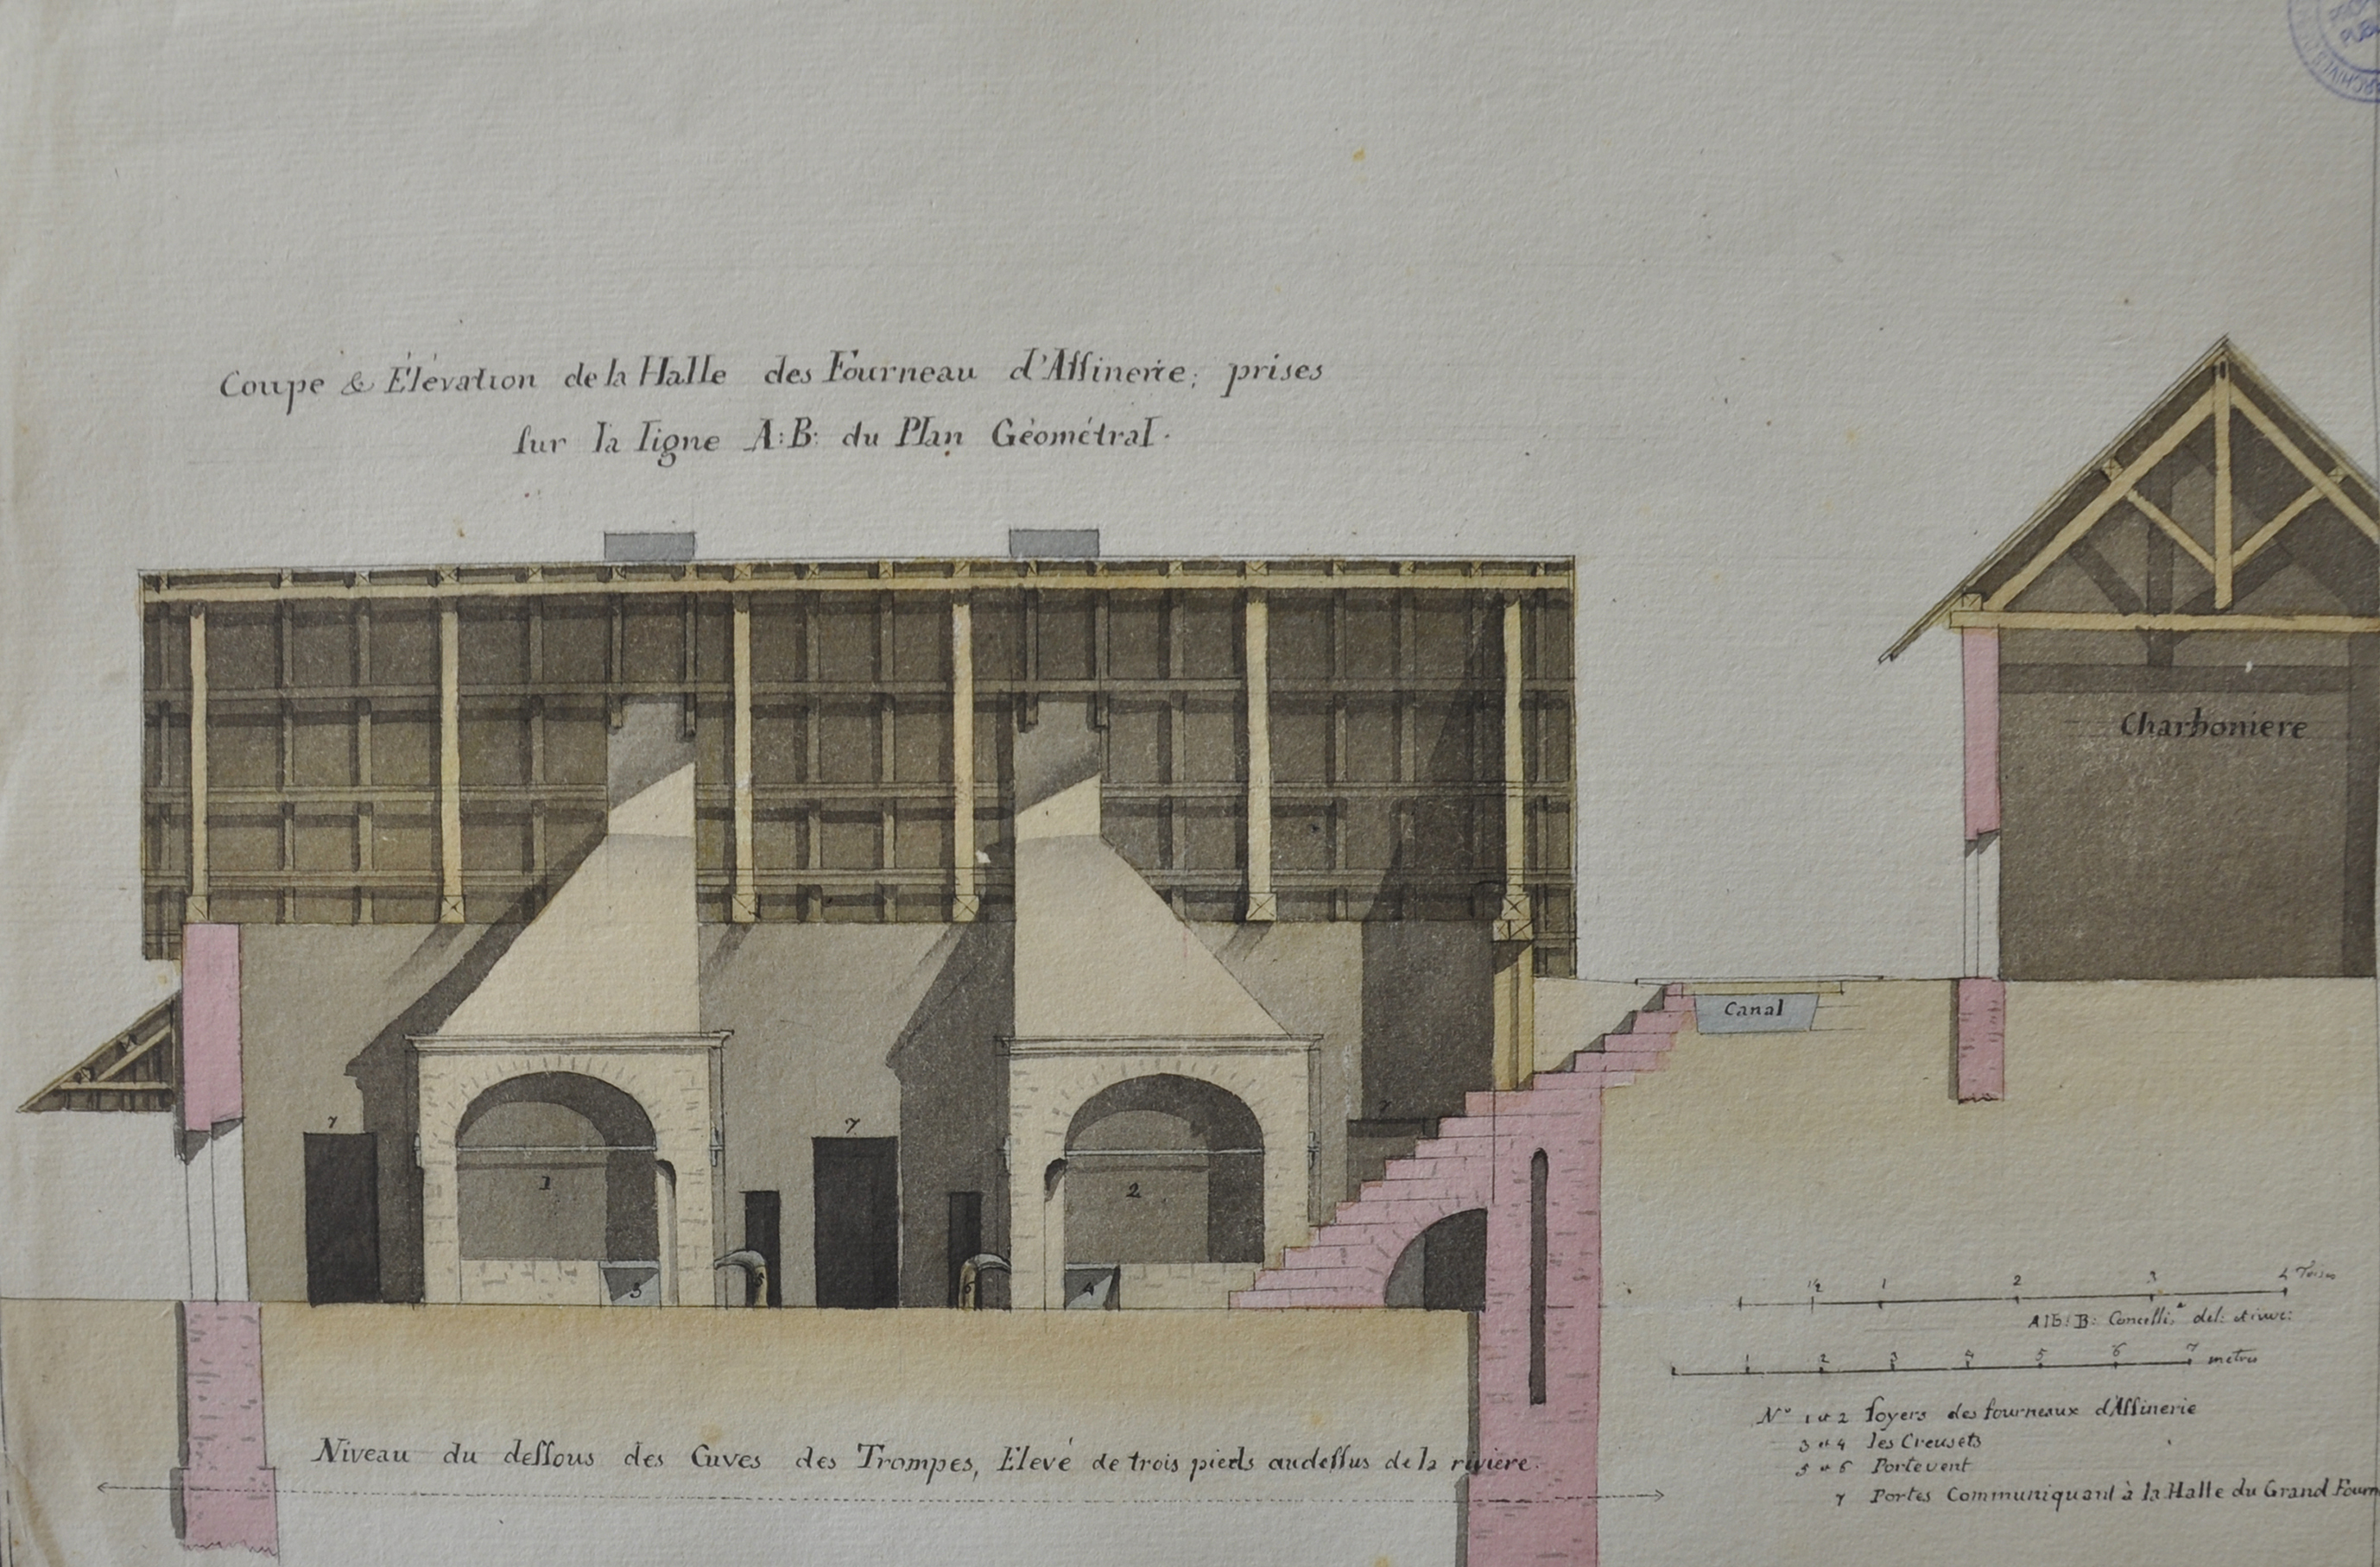 Coupe & Élévation de la Halle des Fourneau d'Affinerie; prises
sur la ligne A:B: du Plan Géométral.
Charboniere
Canal
7
7
7
1
2
3
5
6
4
½ 1 2 3 4 Toises
Alb: B: Concelli, del: et inve:
1 2 3 4 5 6 7 metres
Niveau du dessous des Cuves des Trompes, Elevé de trois pieds audessus de la riviere.
N° 1 et 2 foyers des fourneaux d'Affinerie
3 et 4 les Creusets
5 et 6 Portevent
7 Portes Communiquant à la Halle du Grand Fourn